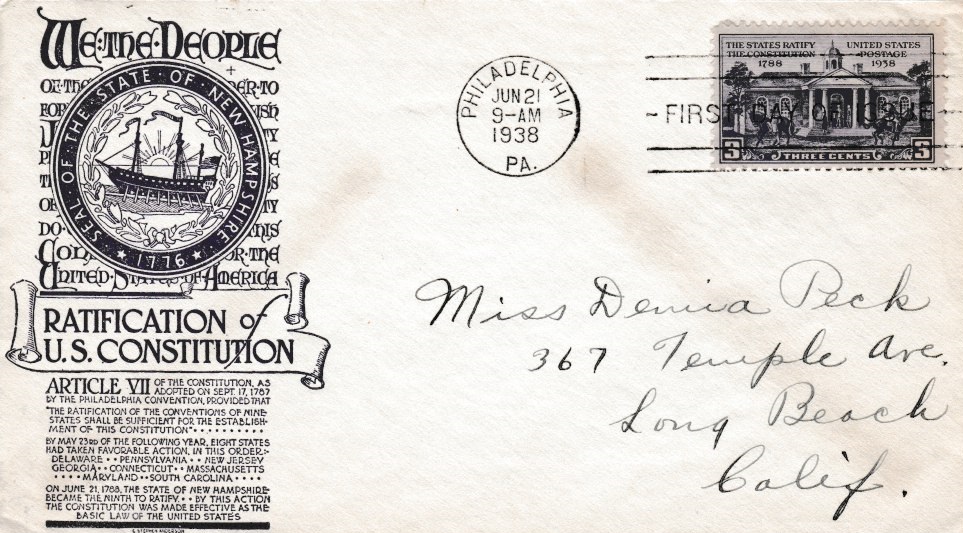 WE·THE·PEOPLE
OF·THE ER·TO
FOR ISH
DO· HIS
CON OR·THE
UNITED·STATES·OF·AMERICA
SEAL·OF·THE·STATE·OF·NEW HAMPSHIRE·
★1776★
RATIFICATION of
U.S. CONSTITUTION
ARTICLE VII OF THE CONSTITUTION, AS
ADOPTED ON SEPT. 17, 1787
BY THE PHILADELPHIA CONVENTION, PROVIDED THAT
"THE RATIFICATION OF THE CONVENTIONS OF NINE
STATES SHALL BE SUFFICIENT FOR THE ESTABLISH-
MENT OF THIS CONSTITUTION"··········
BY MAY 23RD OF THE FOLLOWING YEAR, EIGHT STATES
HAD TAKEN FAVORABLE ACTION, IN THIS ORDER:-
DELAWARE··PENNSYLVANIA··NEW JERSEY
GEORGIA··CONNECTICUT··MASSACHUSETTS
····MARYLAND··SOUTH CAROLINA····
ON JUNE 21, 1788, THE STATE OF NEW HAMPSHIRE
BECAME THE NINTH TO RATIFY··BY THIS ACTION
THE CONSTITUTION WAS MADE EFFECTIVE AS THE
BASIC LAW OF THE UNITED STATES
© STEPHEN ANDERSON
PHILADELPHIA
JUN 21
9-AM
1938
PA.
THE STATES RATIFY
THE CONSTITUTION
1788
UNITED STATES
POSTAGE
1938
FIRST DAY OF ISSUE
3 THREE CENTS 3
Miss Denua Peck
367 Temple Ave.
Long Beach
Calif.